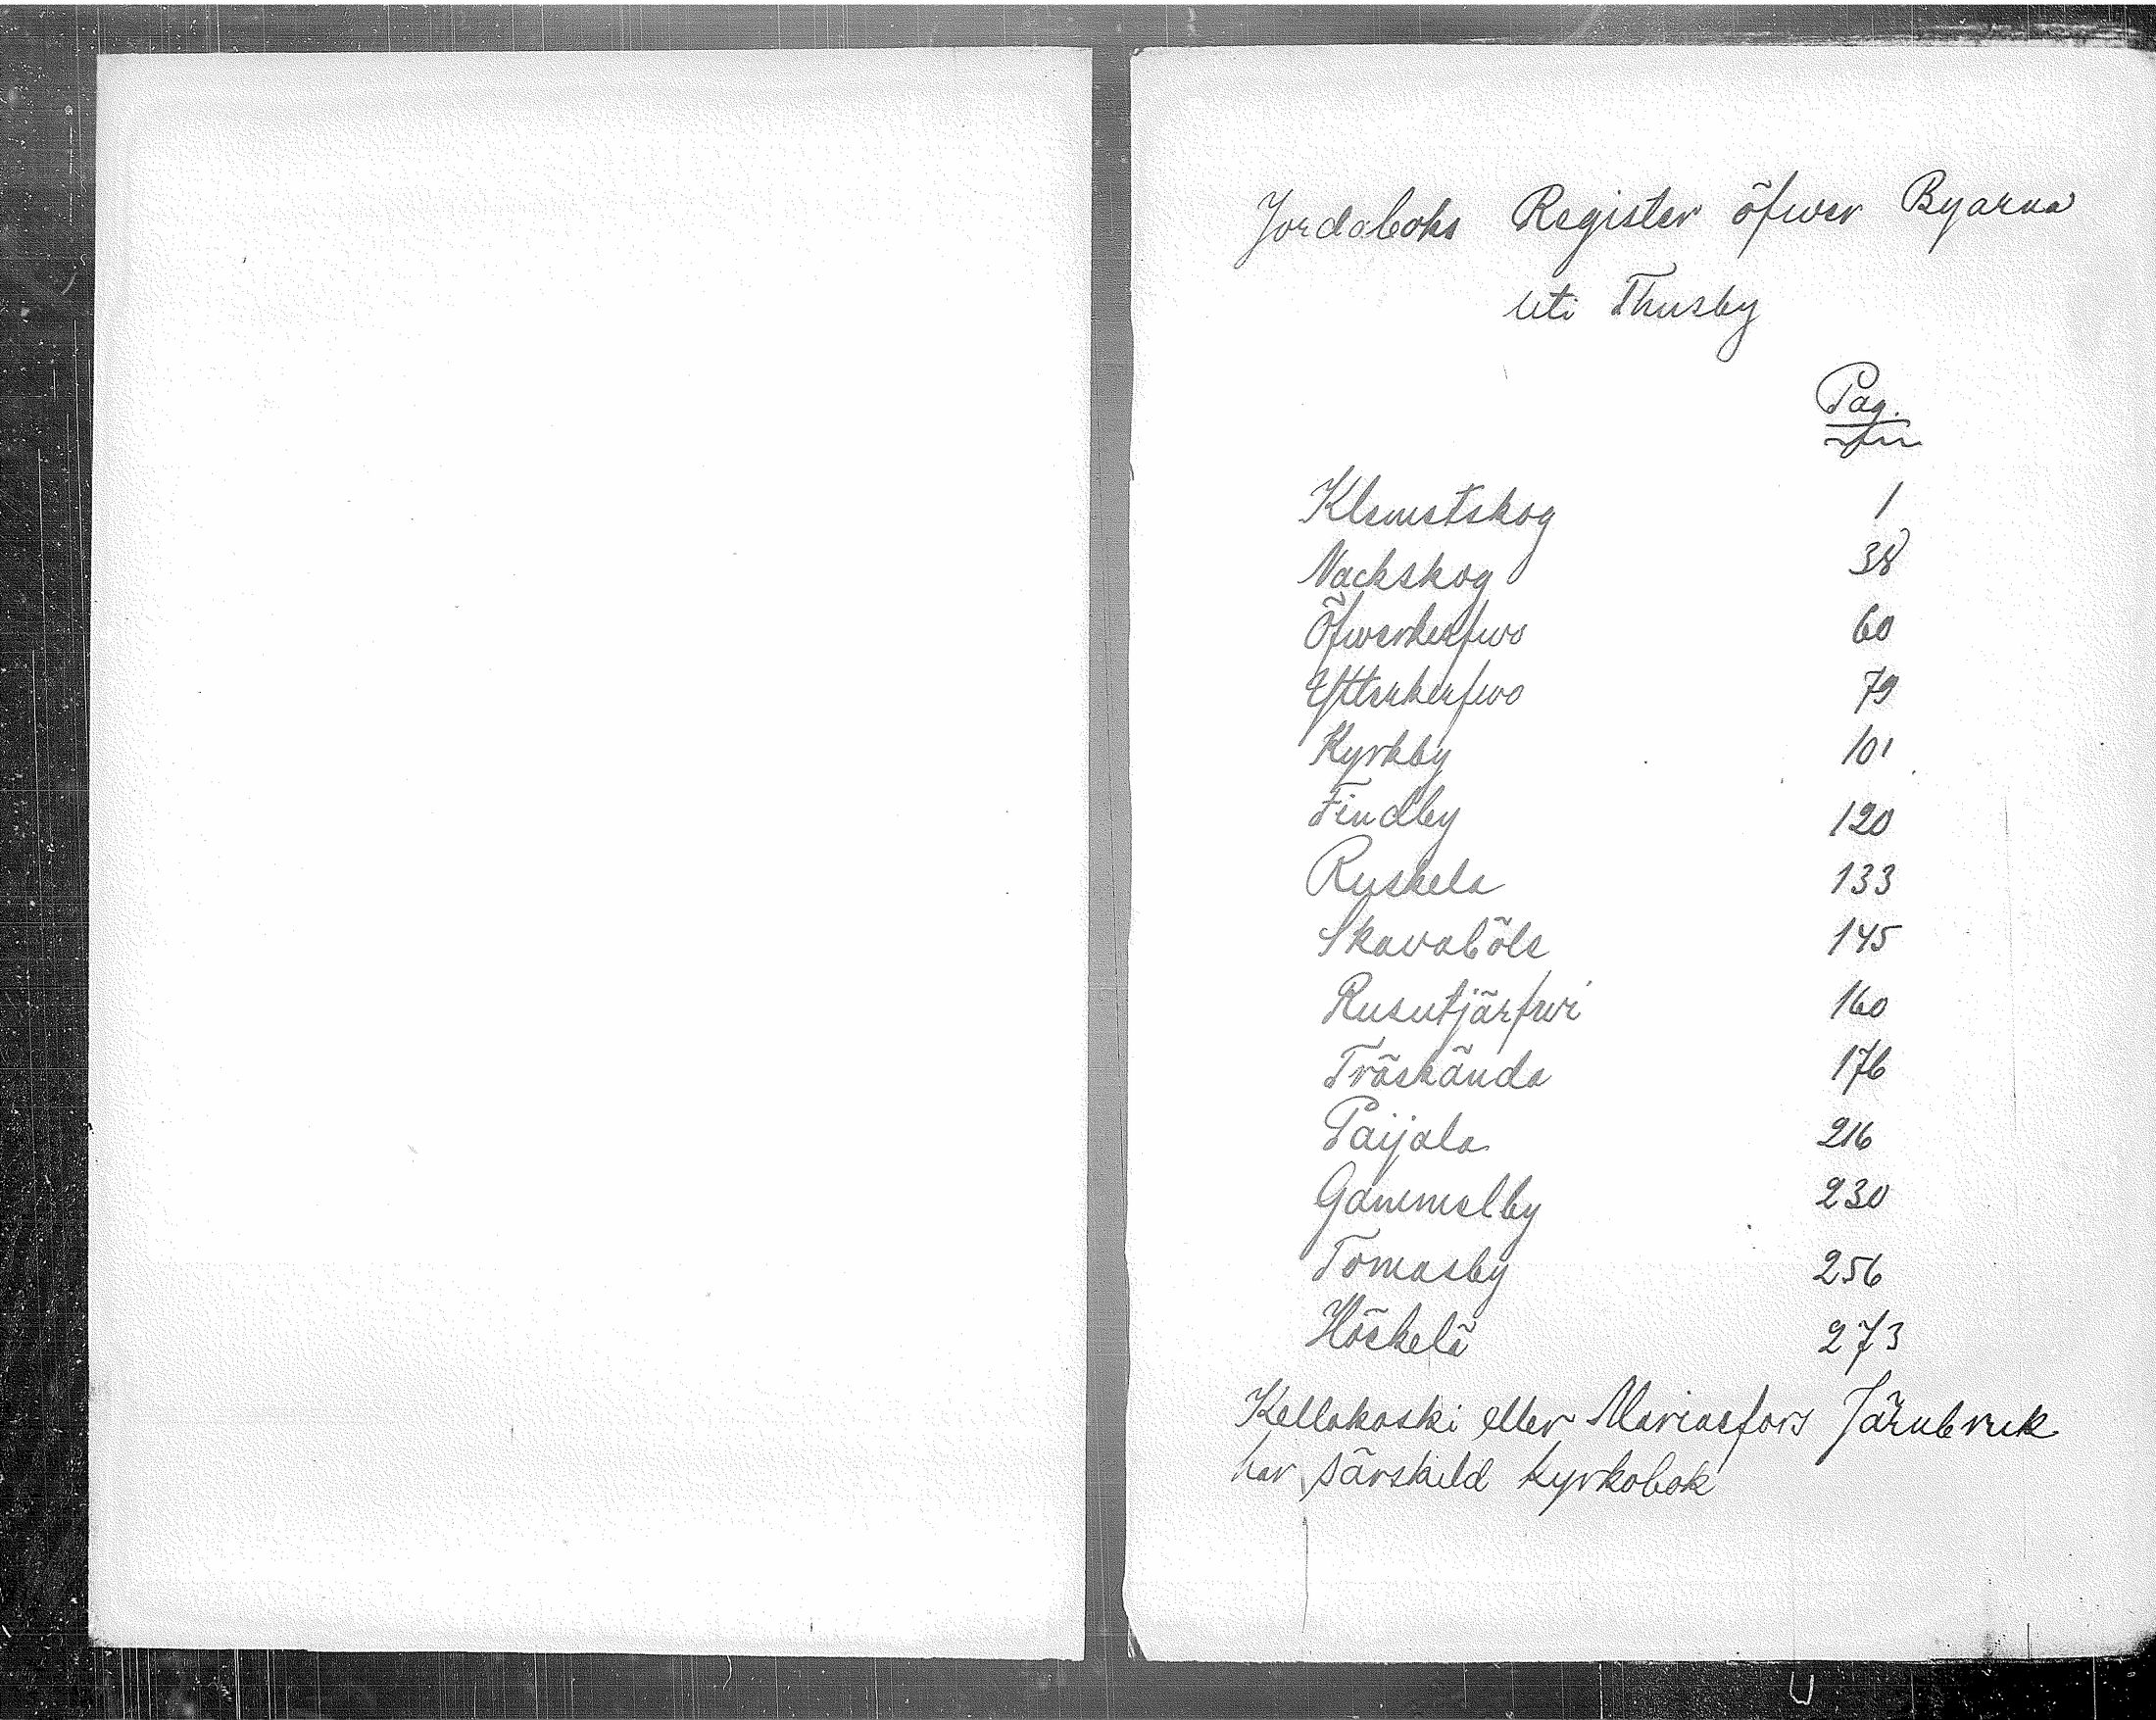 Jordaboks Register öfwer Byarna
uti Thusby
Pag.
Klemetskog 1
Nackskog 38
Öfwerkerfwo 60
Ytterkerfwo 79
Kyrkby 101
Findby 120
Ruskela 133
Skavaböle 145
Rusutjärfwi 160
Träskända 176
Paijala 216
Gammelby 230
Tomasby 256
Höökelä 273
Kellokoski eller Mariaefors Järnbruk
har särskild kyrkobok